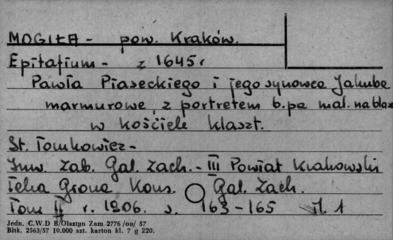 MOGIŁA - pow. Kraków.
Epitafium - z 1645 r
Pawła Piaseckiego i jego synowca Jakuba
marmurowe, z portretem b.pa mal. na blas
w kościele klaszt.
St. Tomkowicz -
Inw. Zab. Gal. Zach. - III Powiat Krakowski
Teka Grona Kons. Gal. Zach.
Tom II r. 1906. s. 163-165 il. 1
Jedn. C.W.D B/Olsztyn Zam 2776/on/ 57
Błtk. 2563/57 10.000 szt. karton kl. 7 g 220.